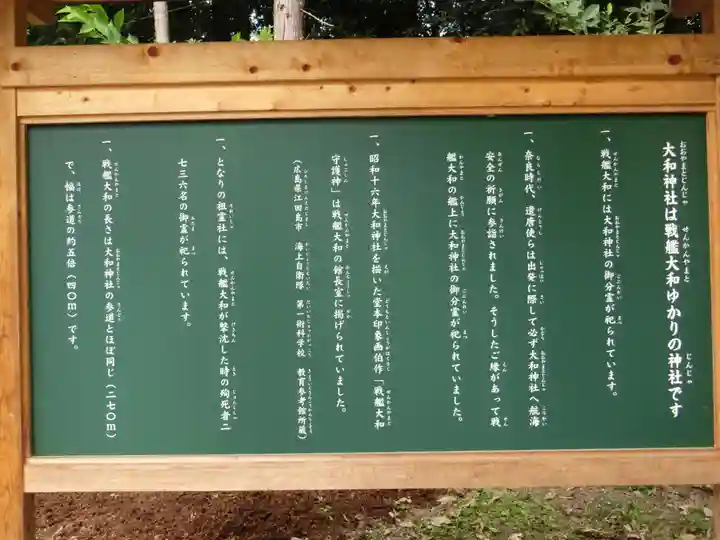 大和神社は戦艦大和ゆかりの神社です
一、戦艦大和には大和神社の御分霊が祀られています。
一、奈良時代、遣唐使らは出発に際して必ず大和神社へ航海
安全の祈願に参詣されました。そうしたご縁があって戦
艦大和の艦上に大和神社の御分霊が祀られていました。
一、昭和十六年大和神社を描いた堂本印象画伯作「戦艦大和
守護神」は戦艦大和の艦長室に掲げられていました。
（広島県江田島市　海上自衛隊　第一術科学校　教育参考館所蔵）
一、となりの祖霊社には、戦艦大和が撃沈した時の殉死者二
七三六名の御霊が祀られています。
一、戦艦大和の長さは大和神社の参道とほぼ同じ（二七〇m）
で、幅は参道の約五倍（四〇m）です。